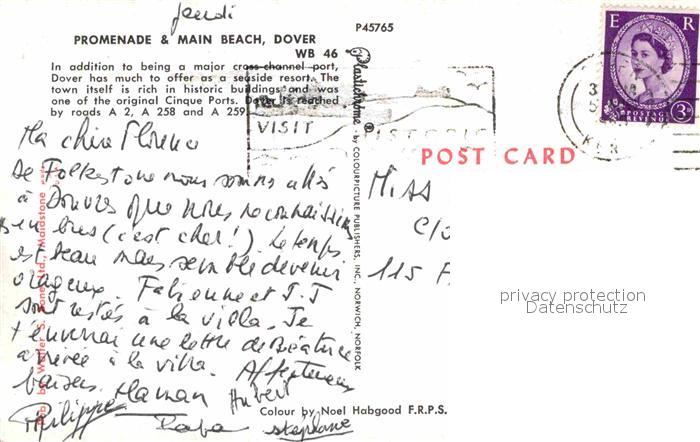 jeudi
P45765
PROMENADE & MAIN BEACH, DOVER
WB 46
In addition to being a major cross-channel port,
Dover has much to offer as a seaside resort. The
town itself is rich in historic buildings and was
one of the original Cinque Ports. Dover is reached
by roads A 2, A 258 and A 259.
E R
POSTAGE
REVENUE
3D
VISIT HISTORIC
KENT
POST CARD
Ma chère Florence
De Folkestone nous sommes allés
à Douvres que nous reconnaissions
bien (c'est cher!) Le temps
est beau mais semble devenir
orageux. Fabienne et J.J
sont restés à la villa. Je
t'enverrai une lettre de Béatrice
arrivée à la villa. Affectueux
baisers Maman Hubert
Philippe Papa Stéphane
MISS
C/o
115
Plastichrome ® by COLOURPICTURE PUBLISHERS, INC., NORWICH, NORFOLK
Pub. by Walter S. Ltd., Maidstone
Colour by Noel Habgood F.R.P.S.
privacy protection
Datenschutz